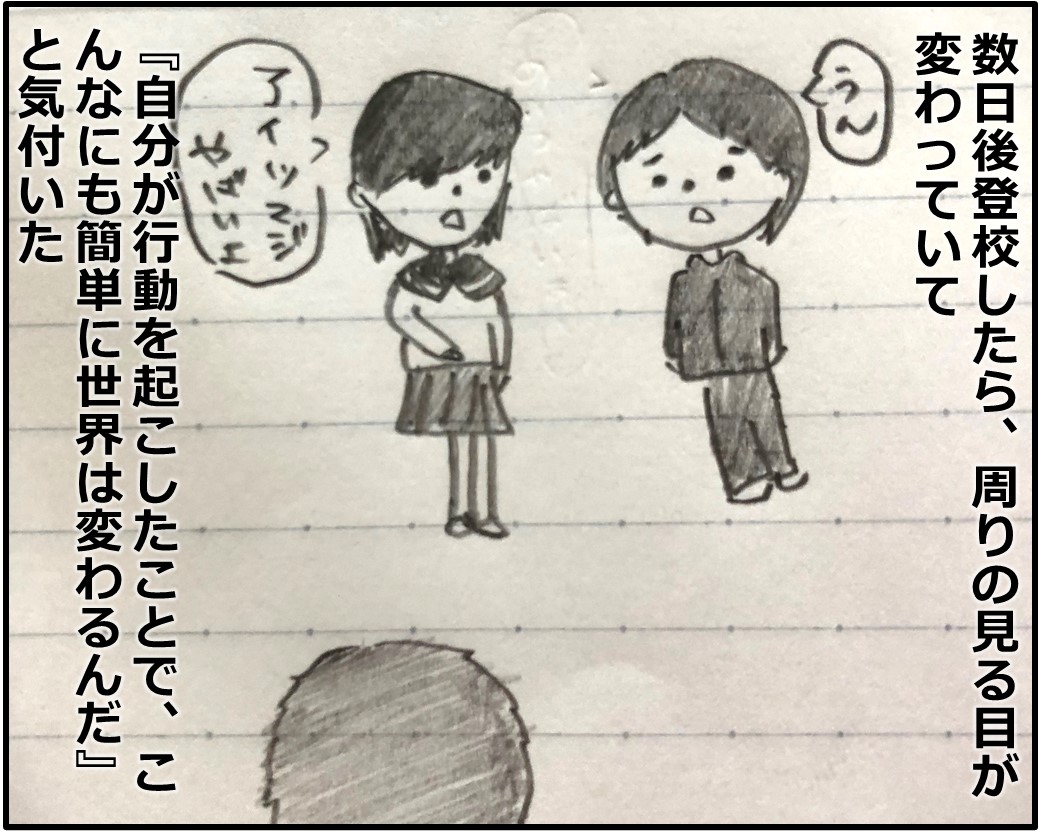 数日後登校したら、周りの見る目が
変わっていて
うん
アイツマジ
やばいよ
『自分が行動を起こしたことで、こ
んなにも簡単に世界は変わるんだ』
と気付いた